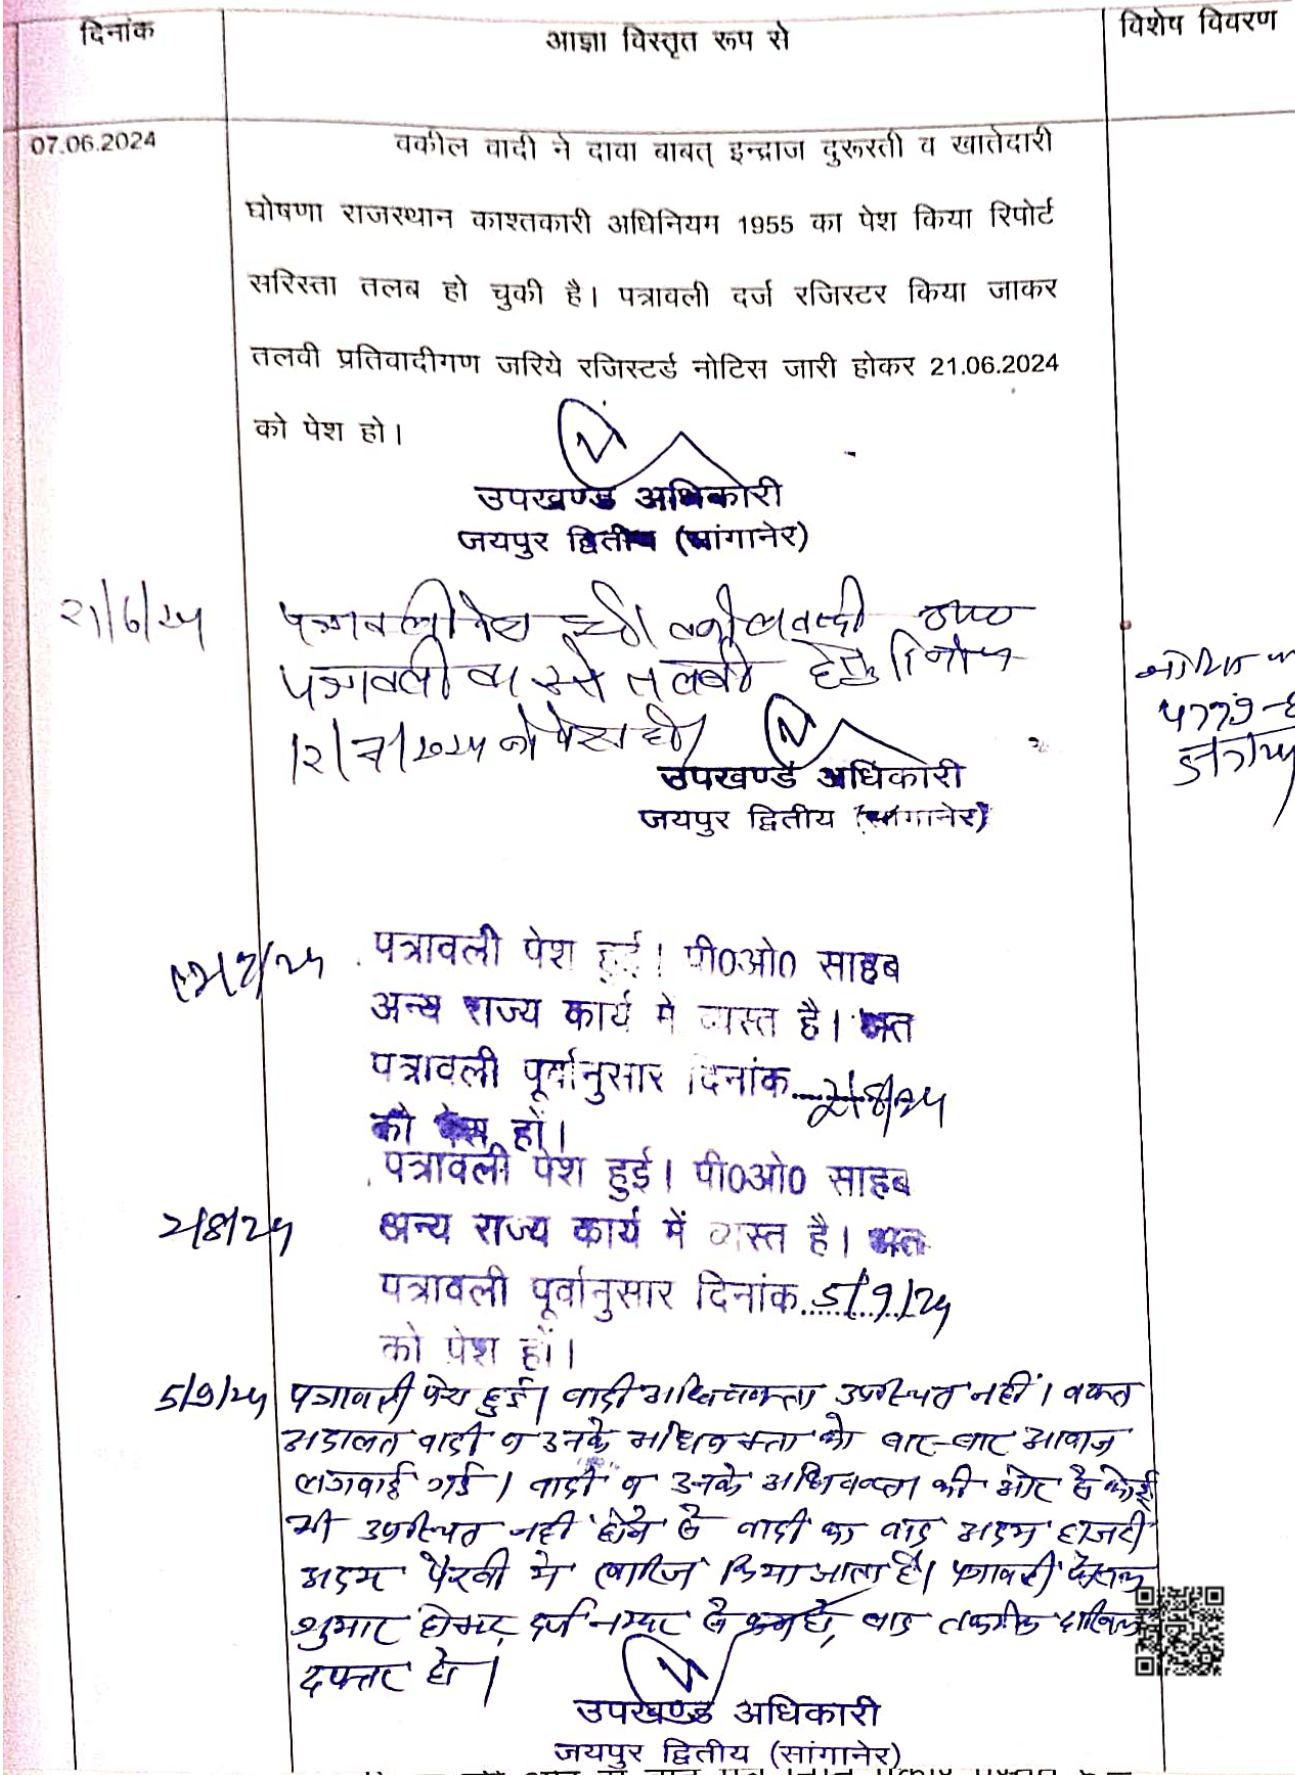 दिनांक
आज्ञा विस्तृत रूप से
विशेष विवरण
07.06.2024
वकील वादी ने दावा बाबत् इन्द्राज दुरूस्ती व खातेदारी
घोषणा राजस्थान काश्तकारी अधिनियम 1955 का पेश किया रिपोर्ट
सरिस्ता तलब हो चुकी है। पत्रावली दर्ज रजिस्टर किया जाकर
तलवी प्रतिवादीगण जरिये रजिस्टर्ड नोटिस जारी होकर 21.06.2024
को पेश हो।
उपखण्ड अधिकारी
जयपुर द्वितीय (सांगानेर)
21/6/24
पत्रावली पेश हुई। वकील वादी
पत्रावली वास्ते तलबी हेतु दिनांक
12/7/2024 को पेश हो।
उपखण्ड अधिकारी
जयपुर द्वितीय (सांगानेर)
12/7/24
पत्रावली पेश हुई। पी0ओ0 साहब
अन्य राज्य कार्य में व्यस्त है। अत
पत्रावली पूर्वानुसार दिनांक....2/8/24
को पेश हों।
पत्रावली पेश हुई। पी0ओ0 साहब
2/8/24
अन्य राज्य कार्य में व्यस्त है। अत
पत्रावली पूर्वानुसार दिनांक..5/9/24
को पेश हों।
5/9/24
पत्रावली पेश हुई। वादी अधिवक्ता उपस्थित नहीं। वक्त
अदालत वादी व उनके अधिवक्ता को बार-बार आवाज
लगवाई गई। वादी व उनके अधिवक्ता की ओर से कोई
भी उपस्थित नहीं होने से वादी का वाद अदम हाजरी
अदम पैरवी में खारिज किया जाता है। पत्रावली फैसल
शुमार होकर दर्ज नम्बर से कम हो, बाद तकमील दाखिल
दफ्तर हो।
उपखण्ड अधिकारी
जयपुर द्वितीय (सांगानेर)